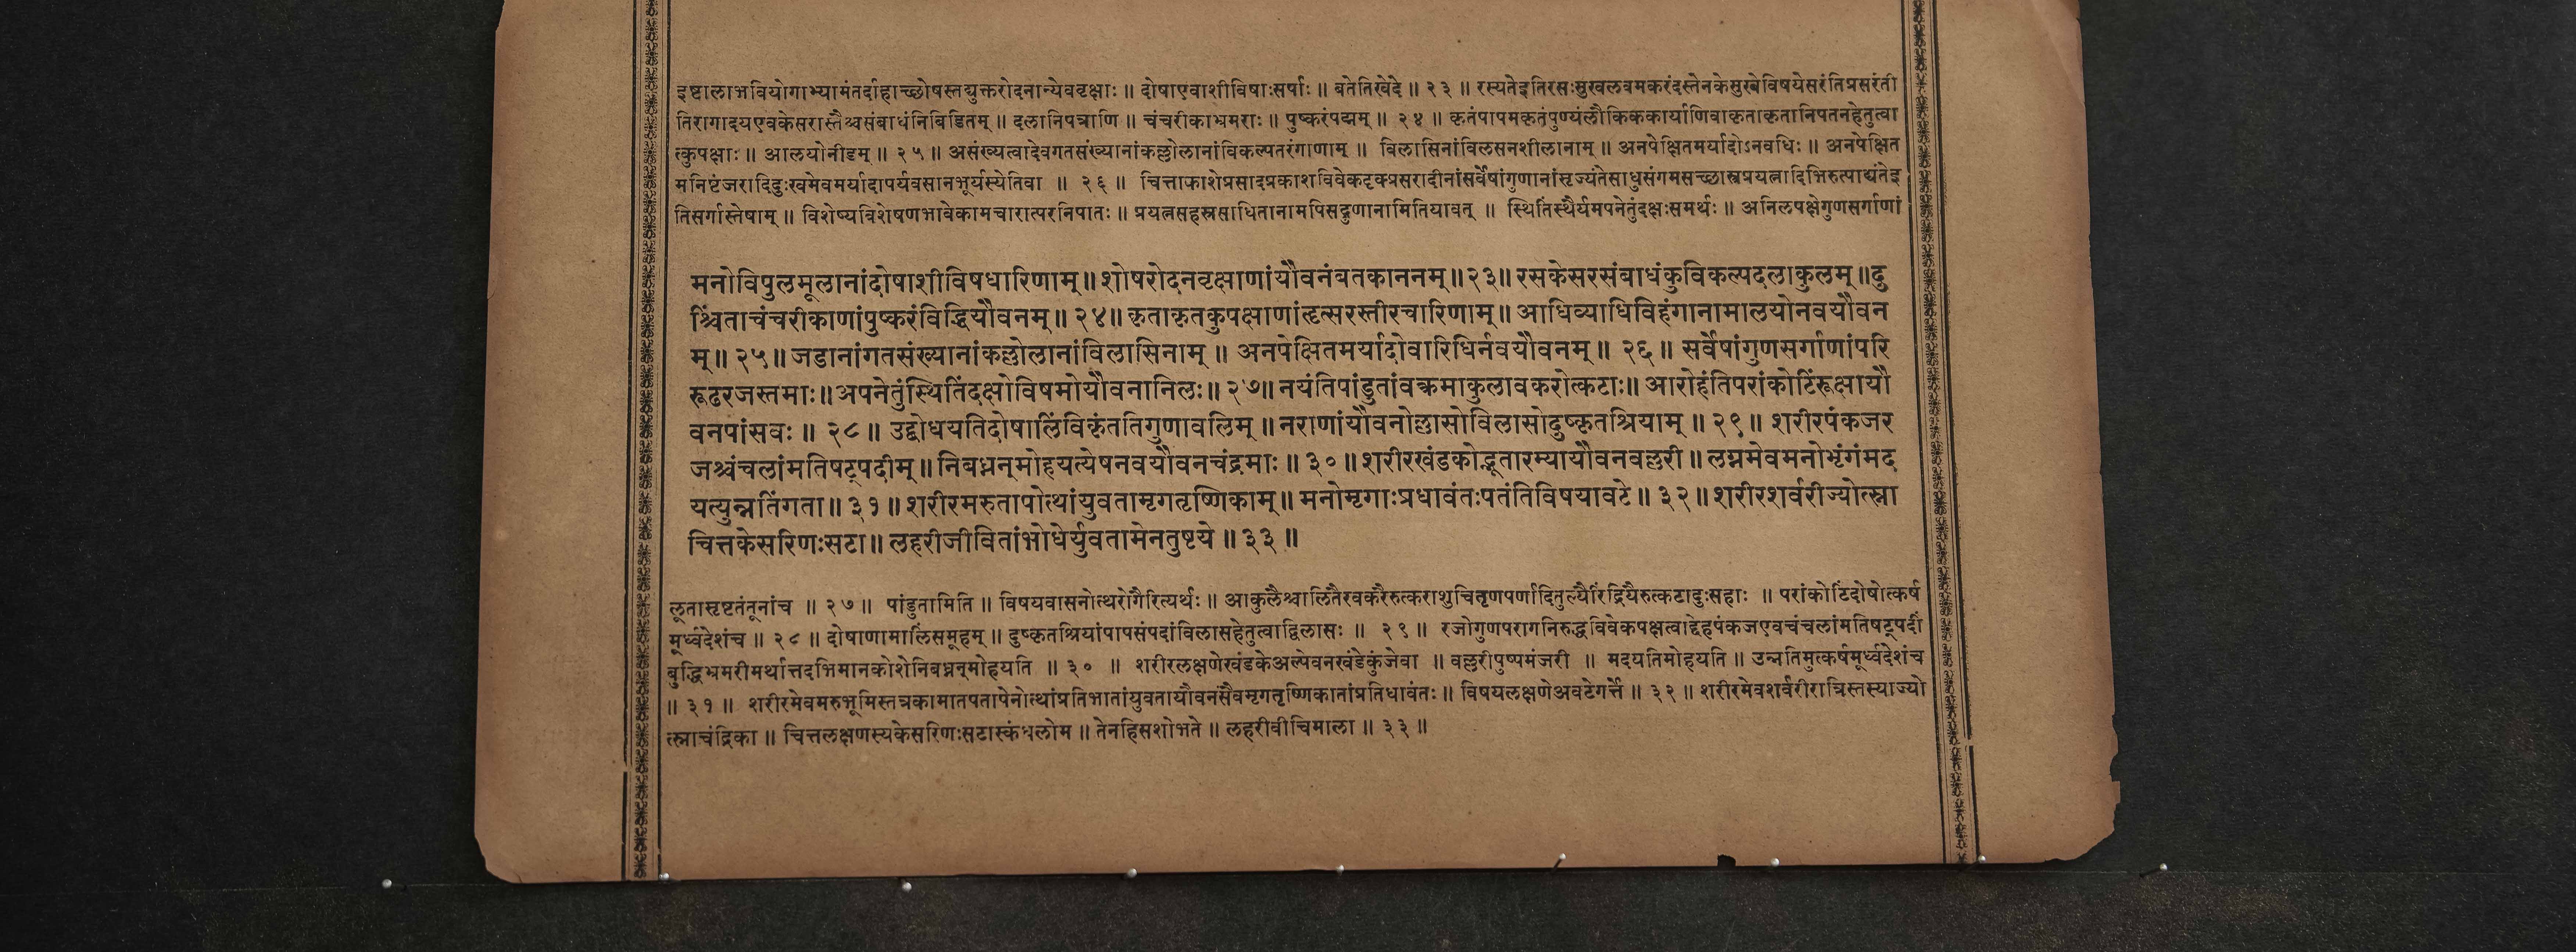 इष्टालाभवियोगाभ्यामंतर्दाहाच्छोषस्तद्युक्तरोदनान्येववृक्षाः ॥ दोषाएवाशीविषाःसर्पाः ॥ बतेतिखेदे ॥ २३ ॥ रस्यतेइतिरसःसुखलवमकरंदस्तेनकेसुखेविषयेसरंतिप्रसरंती
तिरागादयएवकेसरास्तैश्चसंबाधंनिबिडितम् ॥ दलानिपत्राणि ॥ चंचरीकाभ्रमराः ॥ पुष्करंपद्मम् ॥ २४ ॥ कृतंपापमकृतंपुण्यंलौकिककार्याणिवाकृताकृतानिपतनहेतुत्वा
त्कुपक्षाः ॥ आलयोनीडम् ॥ २५ ॥ असंख्यत्वादेवगतसंख्यानांकल्लोलानांविकल्पतरंगाणाम् ॥ विलासिनांविलसनशीलानाम् ॥ अनपेक्षितमर्यादोऽनवधिः ॥ अनपेक्षित
मनिष्टंजरादिदुःखमेवमर्यादापर्यवसानभूर्यस्येतिवा ॥ २६ ॥ चित्ताकाशेप्रसादप्रकाशविवेकदृक्प्रसरादीनांसर्वेषांगुणानांसृज्यंतेसाधुसंगमसच्छास्त्रप्रयत्नादिभिरुत्पाद्यंतेइ
तिसर्गास्तेषाम् ॥ विशेष्यविशेषणभावेकामचारात्परनिपातः ॥ प्रयत्नसहस्रसाधितानामपिसद्गुणानामितियावत् ॥ स्थितिंस्थैर्यमपनेतुंदक्षःसमर्थः ॥ अनिलपक्षेगुणसर्गाणां
मनोविपुलमूलानांदोषाशीविषधारिणाम् ॥ शोषरोदनवृक्षाणांयौवनंबतकाननम् ॥ २३ ॥ रसकेसरसंबाधंकुविकल्पदलाकुलम् ॥ दु
श्चिंताचंचरीकाणांपुष्करंविद्धियौवनम् ॥ २४ ॥ कृताकृतकुपक्षाणांहृत्सरस्तीरचारिणाम् ॥ आधिव्याधिविहंगानामालयोनवयौवन
म् ॥ २५ ॥ जडानांगतसंख्यानांकल्लोलानांविलासिनाम् ॥ अनपेक्षितमर्यादोवारिधिर्नवयौवनम् ॥ २६ ॥ सर्वेषांगुणसर्गाणांपरि
रूढरजस्तमाः ॥ अपनेतुंस्थितिंदक्षोविषमोयौवनानिलः ॥ २७ ॥ नयंतिपांडुतांवक्त्रमाकुलावकरोत्कटाः ॥ आरोहंतिपरांकोटिंरूक्षायौ
वनपांसवः ॥ २८ ॥ उद्बोधयतिदोषालिंविकृंततिगुणावलिम् ॥ नराणांयौवनोल्लासोविलासोदुष्कृतश्रियाम् ॥ २९ ॥ शरीरपंकजर
जश्चंचलांमतिषट्पदीम् ॥ निबध्नन्मोहयत्येषनवयौवनचंद्रमाः ॥ ३० ॥ शरीरखंडकोद्भूतारम्यायौवनवल्लरी ॥ लग्नमेवमनोभृंगंमद
यत्युन्नतिंगता ॥ ३१ ॥ शरीरमरुतापोत्थांयुवतामृगतृष्णिकाम् ॥ मनोमृगाःप्रधावंतःपतंतिविषयावटे ॥ ३२ ॥ शरीरशर्वरीज्योत्स्ना
चित्तकेसरिणःसटा ॥ लहरीजीवितांभोधेर्युवतामेनतुष्टये ॥ ३३ ॥
लूतासृष्टतंतूनांच ॥ २७ ॥ पांडुतामिति ॥ विषयवासनोत्थरोगैरित्यर्थः ॥ आकुलैश्चालितैरवकरैरुत्कराशुचितृणपर्णादितुल्यैरिंद्रियैरुत्कटादुःसहाः ॥ परांकोटिंदोषोत्कर्ष
मूर्ध्वदेशंच ॥ २८ ॥ दोषाणामालिंसमूहम् ॥ दुष्कृतश्रियांपापसंपदांविलासहेतुत्वाद्विलासः ॥ २९ ॥ रजोगुणपरागनिरुद्धविवेकपक्षत्वाद्देहपंकजएवचंचलांमतिषट्पदीं
बुद्धिभ्रमरीमर्थात्तदभिमानकोशेनिबध्नन्मोहयति ॥ ३० ॥ शरीरलक्षणेखंडकेअल्पेवनखंडेकुंजेवा ॥ वल्लरीपुष्पमंजरी ॥ मदयतिमोहयति ॥ उन्नतिमुत्कर्षमूर्ध्वदेशंच
॥ ३१ ॥ शरीरमेवमरुभूमिस्तत्रकामातपतापेनोत्थांप्रतिभातांयुवतायौवनंसैवमृगतृष्णिकातांप्रतिधावंतः ॥ विषयलक्षणेअवटेगर्त्ते ॥ ३२ ॥ शरीरमेवशर्वरीरात्रिस्तस्याज्यो
त्स्नाचंद्रिका ॥ चित्तलक्षणस्यकेसरिणःसटास्कंधलोम ॥ तेनहिसशोभते ॥ लहरीवीचिमाला ॥ ३३ ॥